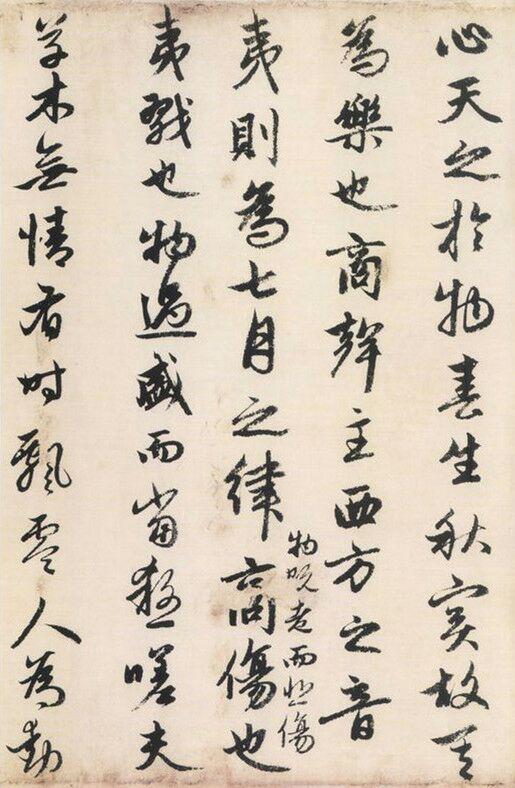 心天之於物春生秋實故其
為樂也商聲主西方之音
夷則為七月之律商傷也
物既老而悲傷
夷戮也物過盛而當殺嗟夫
草木無情有時飄零人為動